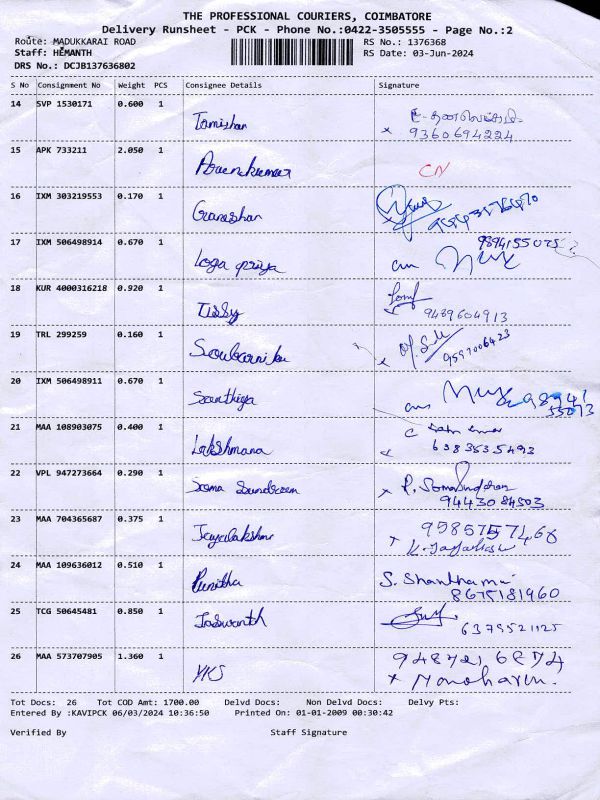 THE PROFESSIONAL COURIERS, COIMBATORE
Delivery Runsheet - PCK - Phone No.:0422-3505555 - Page No.:2
Route: MADUKKARAI ROAD
RS No.: 1376368
Staff: HEMANTH
RS Date: 03-Jun-2024
DRS No.: DCJB137636802
S No Consignment No Weight PCS Consignee Details Signature
14 SVP 1530171 0.600 1
Tamishan
x 9360694224
15 APK 733211 2.050 1
CN
16 IXM 303219553 0.170 1
Ganeshan
17 IXM 506498914 0.670 1
9894155075
Loga priya
18 KUR 4000316218 0.920 1
Tissy
9489604913
19 TRL 299259 0.160 1
9597006423
20 IXM 506498911 0.670 1
Santhiya
21 MAA 108903075 0.400 1
Lakshmana
6383535492
22 VPL 947273664 0.290 1
Soma Sundreem
x P. Somasundaran
9443084503
23 MAA 704365687 0.375 1
9585757468
Jayalakshmi
24 MAA 109636012 0.510 1
Punitha
S. Shanthamani
8675181960
25 TCG 50645481 0.850 1
Jaswanth
6379521125
26 MAA 573707905 1.360 1
948721 6874
YKS
x Manoharan.
Tot Docs: 26 Tot COD Amt: 1700.00 Delvd Docs: Non Delvd Docs: Delvy Pts:
Entered By :KAVIPCK 06/03/2024 10:36:50 Printed On: 01-01-2009 00:30:42
Verified By Staff Signature